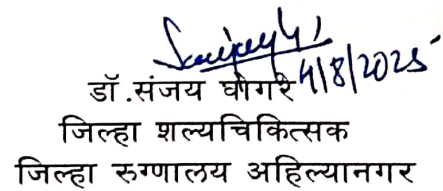 4/8/2025
डॉ.संजय घोगरे
जिल्हा शल्यचिकित्सक
जिल्हा रुग्णालय अहिल्यानगर